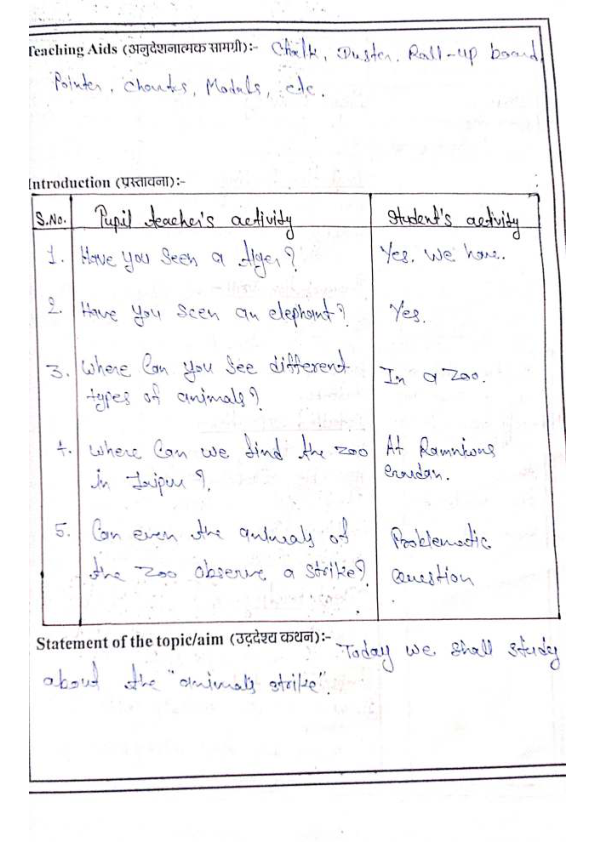 Teaching Aids (अनुदेशनात्मक सामग्री):- Chalk, Duster. Roll-up board,
Pointer, Charts, Models, etc.
Introduction (प्रस्तावना):-
S.No. Pupil teacher's activity Student's activity
1. Have you seen a tiger? Yes. We have.
2. Have you seen an elephant? Yes.
3. Where Can you see different In a zoo.
types of animals?
4. Where Can we find the zoo At Ramniwas
in Jaipur? Garden.
5. Can even the animals of Problematic
the zoo observe a strike? Question
Statement of the topic/aim (उद्देश्य कथन):- Today we shall study
about the "animal's strike".